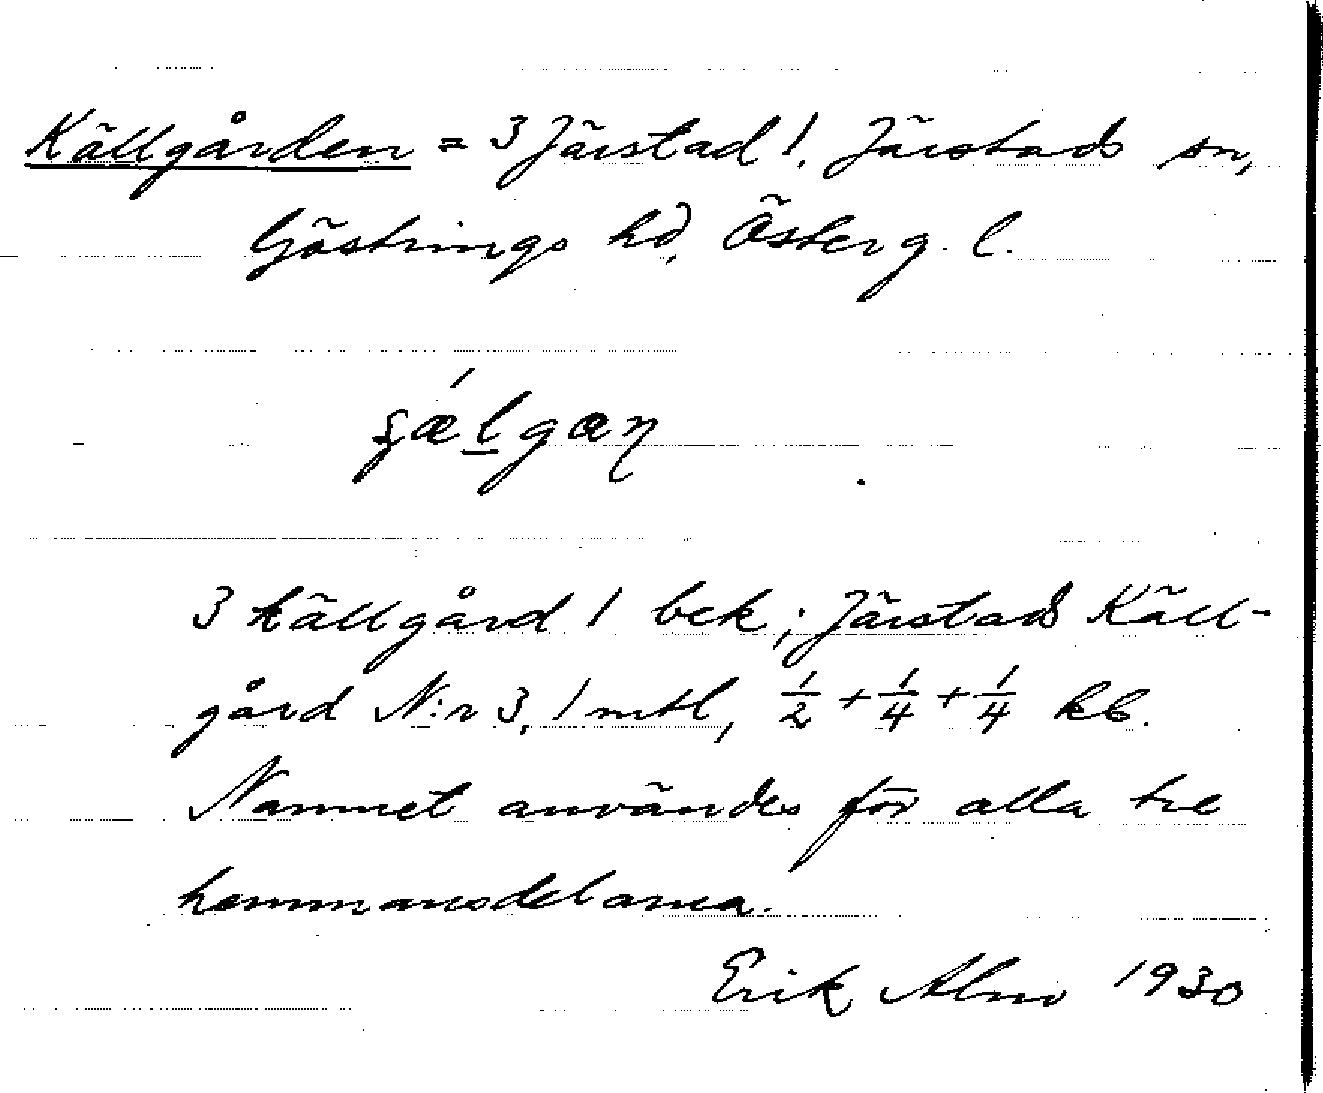 Källgården = 3 Järstad 1, Järstads sn,
Göstrings hd, Österg. l.
ʂǽlgæɳ
3 källgård 1 bek; Järstads Käll-
gård N:r 3, 1 mtl, 1/2 + 1/4 + 1/4 kb.
Namnet användes för alla tre
hemmansdelarna.
Erik Almo 1930